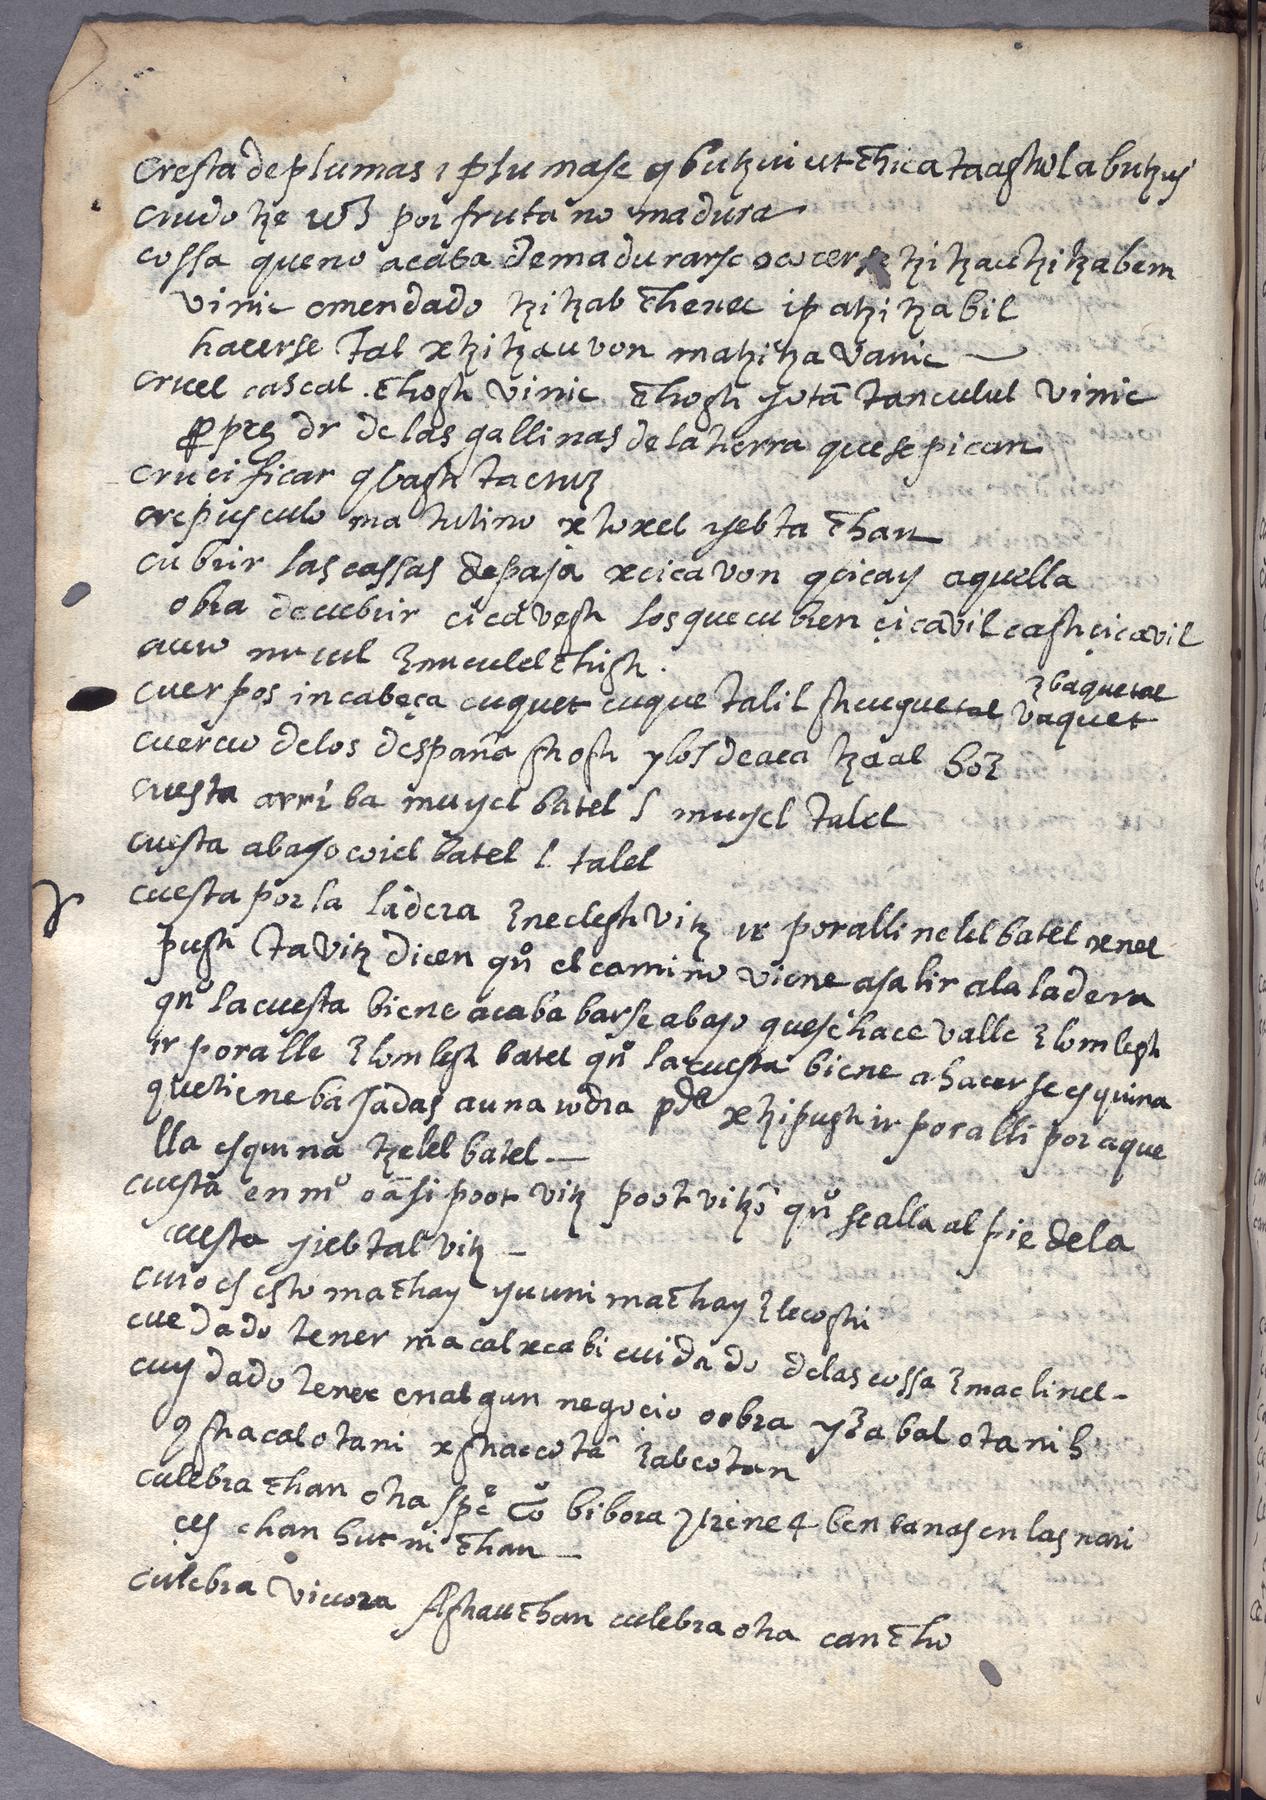 cresta de plumas i plumase q butzui ut chica taashol a butzuy
crudo tze vo3 por fruta no madura
cossa que no acaba de madurarse o cocerse tzitzau tzitzabem
vinic omendado tzitzab chenec ip atzitzabil
hacerse tal xtzitzau von matzitza vanic
cruel cascal. chogh vinic chogh yotã tanculul vinic
dr de las gallinas de la tierra que se pican
crucificar qbagh ta cruz
crepusculo matutino xtoxel yebta chan
cubrir las cassas de paja xcicavon qcicay aquella
obra de cubrir cicavegh los que cubren çicavil cagh çicavil
cuerpos in cabeça cuquet cuque talil ghcuquetal vaquet
3baquetal
cuervo de los despaña ghogh y los de aca tzaal ho3
cuesta arriba muyel batel l muyel talel
cuesta abajo coiel batel l talel
cuesta por la ladera 3neclegh vitz ir por alli nelel batel xnel
pugh ta vitz dicen qñº el camino viene a salir a la ladera
qñº la cuesta biene acaba barse abajo que se hace valle 3lomlegh
ir por alli 3lomlegh batel qñº la cuesta biene a hacerse esquina
que tiene bajadas a una io dra pde xtzipugh ir por alli por aque
lla esquina tzelel batel
cuesta en mº oã si poot vitz poot vitzº qñº se alla al pie de la
cuesta yieb tal vitz
cuio es esto machay yuuni machay 3lecoghi
cuedado tener macalxcabi cuidado de las cossa 3maclinel
cuydado tener en algun negocio o obra y3abal otanih
qghacal otani xghaccotã 3abcotan
culebra chan otra spẽ cõ bibora tiene 4 bentanas en las nari
çes chan hut ni chan
culebra vivora Aghau chan culebra otra cancho